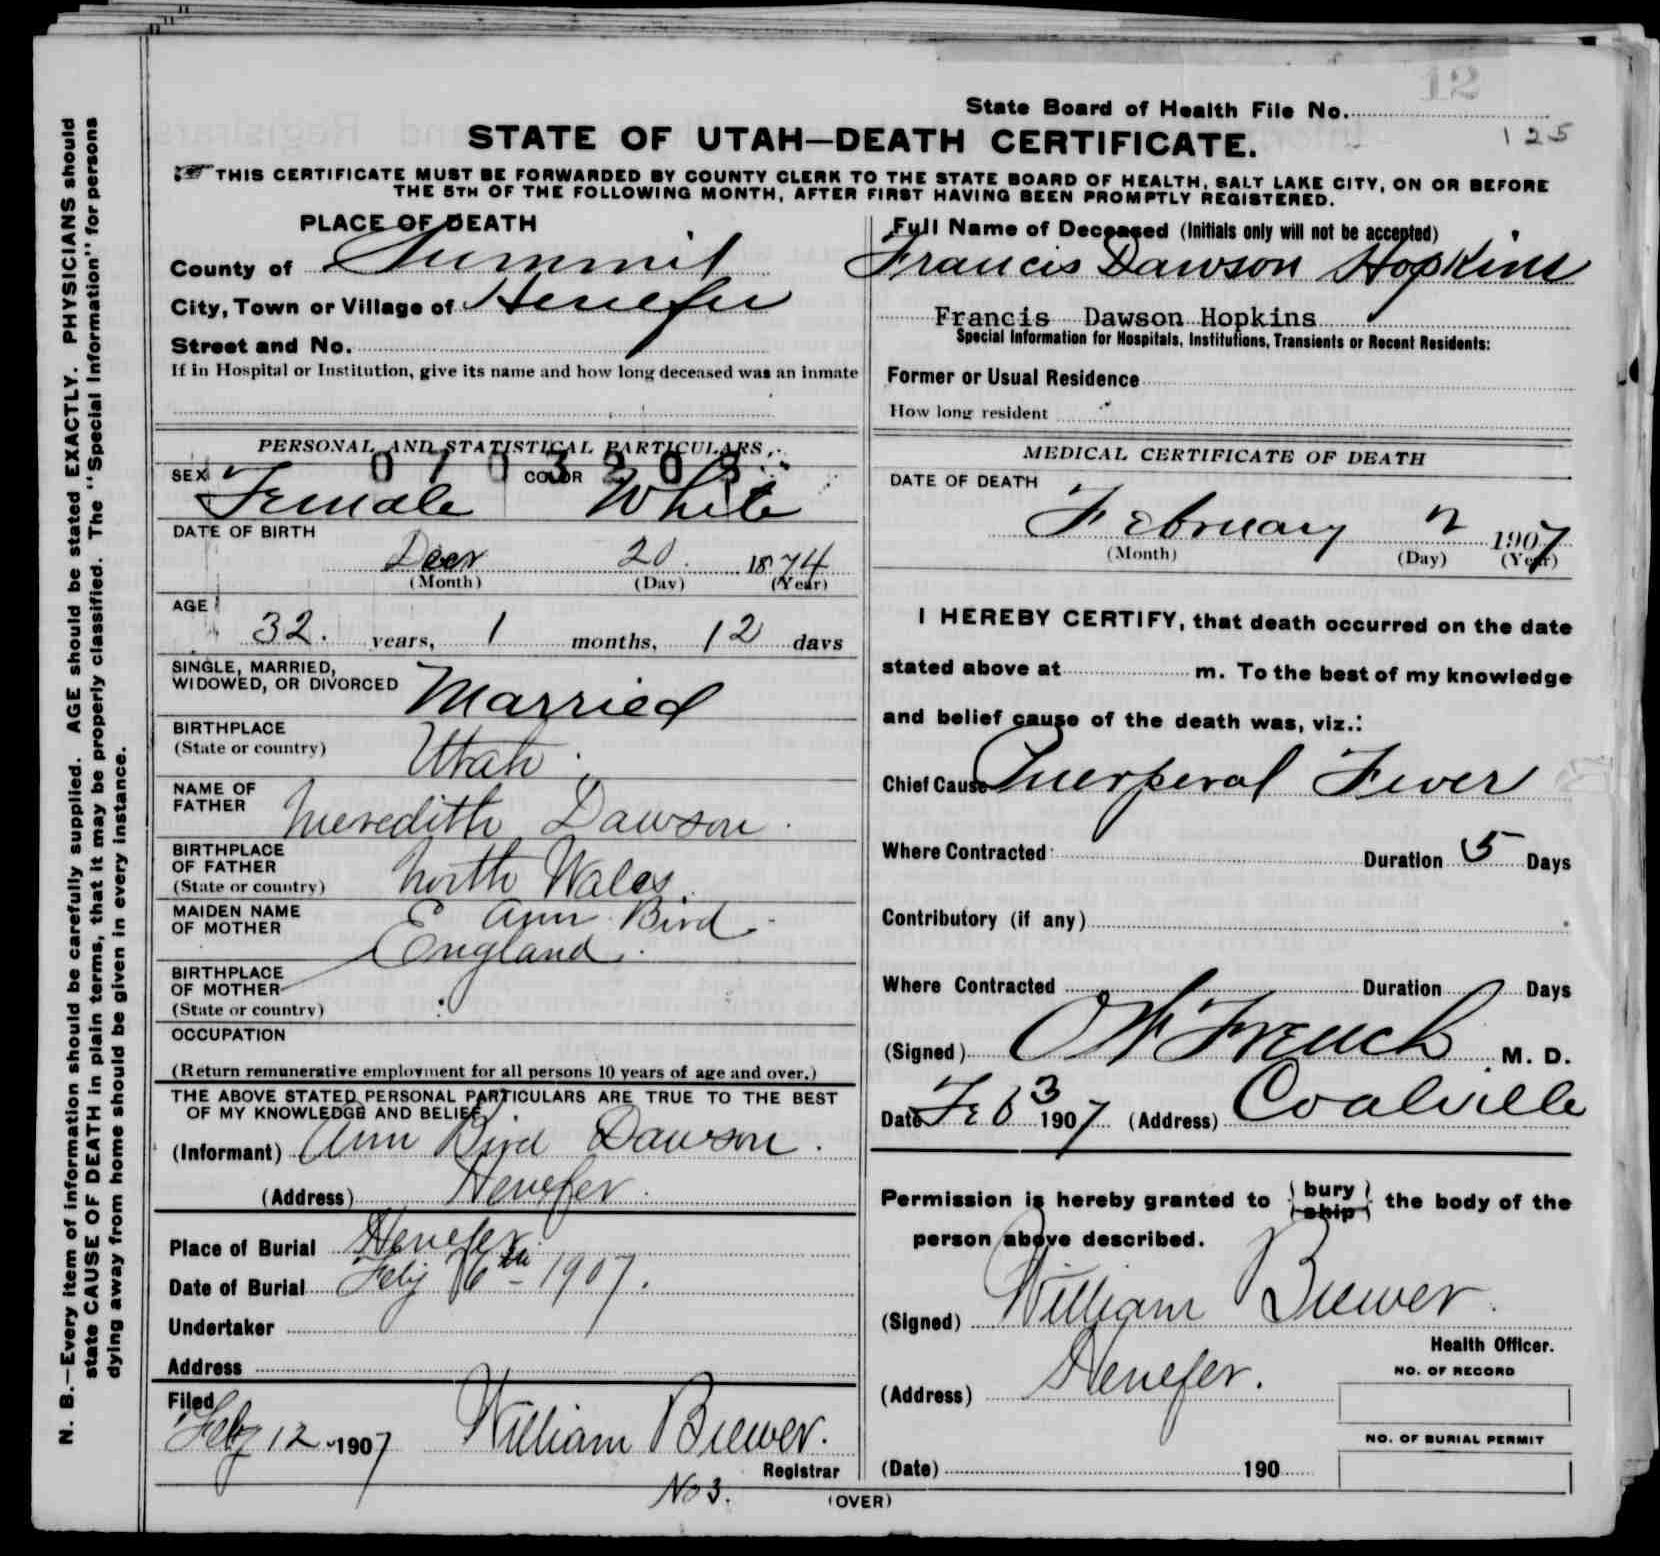 12
State Board of Health File No.
125
STATE OF UTAH—DEATH CERTIFICATE.
THIS CERTIFICATE MUST BE FORWARDED BY COUNTY CLERK TO THE STATE BOARD OF HEALTH, SALT LAKE CITY, ON OR BEFORE
THE 5TH OF THE FOLLOWING MONTH, AFTER FIRST HAVING BEEN PROMPTLY REGISTERED.
N. B.—Every item of information should be carefully supplied. AGE should be stated EXACTLY. PHYSICIANS should
state CAUSE OF DEATH in plain terms, that it may be properly classified. The "Special Information" for persons
dying away from home should be given in every instance.
PLACE OF DEATH
County of Summit
City, Town or Village of Henefer
Street and No.
If in Hospital or Institution, give its name and how long deceased was an inmate
PERSONAL AND STATISTICAL PARTICULARS
0703203
SEX Female COLOR White
DATE OF BIRTH
Decr 20 1874
(Month) (Day) (Year)
AGE
32. years, 1 months, 12 days
SINGLE, MARRIED,
WIDOWED, OR DIVORCED Married
BIRTHPLACE
(State or country) Utah
NAME OF
FATHER Meredith Dawson
BIRTHPLACE
OF FATHER
(State or country) North Wales
MAIDEN NAME
OF MOTHER E Ann Bird
England
BIRTHPLACE
OF MOTHER
(State or country)
OCCUPATION
(Return remunerative employment for all persons 10 years of age and over.)
THE ABOVE STATED PERSONAL PARTICULARS ARE TRUE TO THE BEST
OF MY KNOWLEDGE AND BELIEF
(Informant) Ann Bird Dawson.
(Address) Henefer.
Place of Burial Henefer
Date of Burial Feby 6th 1907.
Undertaker
Address
Filed
Feby 12 1907 William Brewer.
Registrar
No 3.
(OVER)
Full Name of Deceased (Initials only will not be accepted)
Francis Dawson Hopkins
Francis Dawson Hopkins
Special Information for Hospitals, Institutions, Transients or Recent Residents:
Former or Usual Residence
How long resident
MEDICAL CERTIFICATE OF DEATH
DATE OF DEATH
February 2 1907
(Month) (Day) (Year)
I HEREBY CERTIFY, that death occurred on the date
stated above at m. To the best of my knowledge
and belief cause of the death was, viz.:
Chief Cause Puerperal Fever
Where Contracted Duration 5 Days
Contributory (if any)
Where Contracted Duration Days
(Signed) French M. D.
Date Feb 3 1907 (Address) Coalville
Permission is hereby granted to (bury) (ship) the body of the
person above described.
(Signed) William Brewer.
Health Officer.
(Address) Henefer.
NO. OF RECORD
NO. OF BURIAL PERMIT
(Date) 190